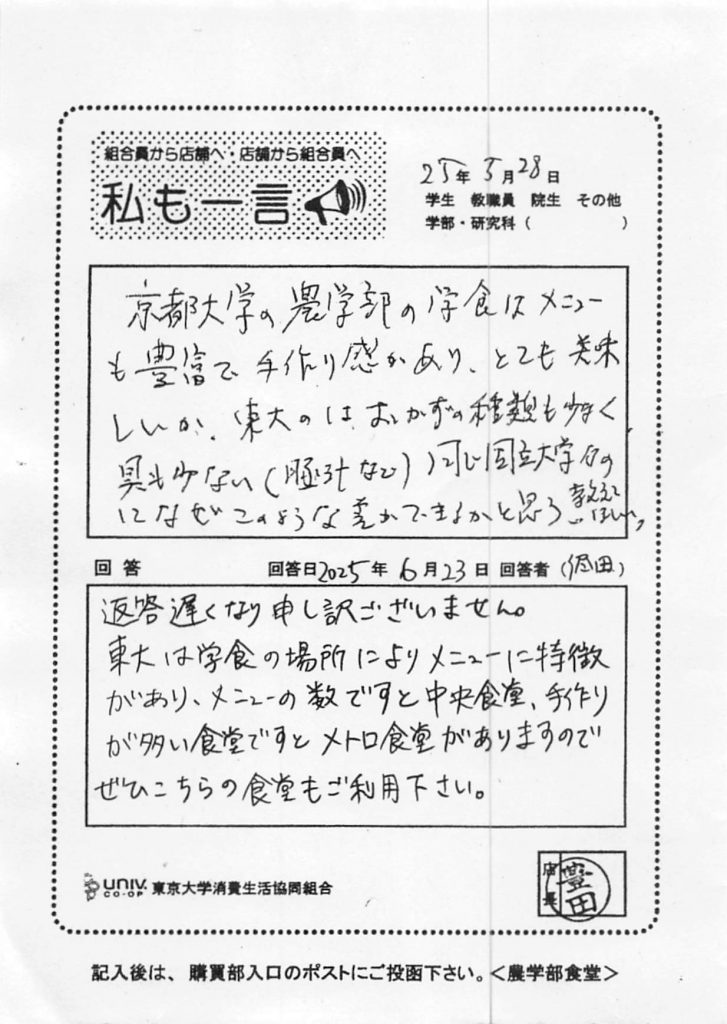 組合員から店舗へ・店舗から組合員へ
私も一言
25年5月28日
学生 教職員 院生 その他
学部・研究科( )
京都大学の農学部の学食はメニュー
も豊富で手作り感があり、とても美味
しいが、東大のは、おかずの種類も少なく
具も少ない(豚汁など)同じ国立大学な
のになぜこのような差がでまるかと思う教えてほしい。
回答 回答日2025年6月23日 回答者( 田)
返答遅くなり申し訳ございません。
東大は学食の場所によりメニューに特徴
があり、メニューの数ですと中央食堂、手作り
が多い食堂ですとメトロ食堂がありますので
ぜひこちらの食堂もご利用下さい。
UNIV. CO-OP 東京大学消費生活協同組合
店長 豊田
記入後は、購買部入口のポストにご投函下さい。<農学部食堂>